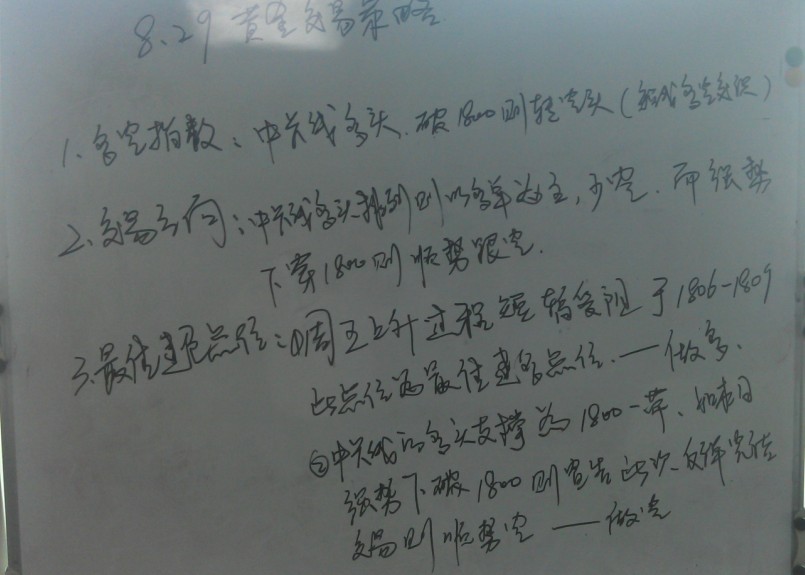 8.29 黄金交易策略
1、多空指数：中长线多头、破1800则转空头（多空交织）
2、交易方向：中长线多头排列则以多单为主，少空．而强势
下穿1800则顺势跟空．
3、最佳建仓点位：①周五上升过程短暂受阻于1806-1809
此点位为最佳建多点位．——做多、
②中长线的多头支撑为1800一带、如本日
强势下破1800则宣告此次反弹完结
交易则顺势空 ——做空